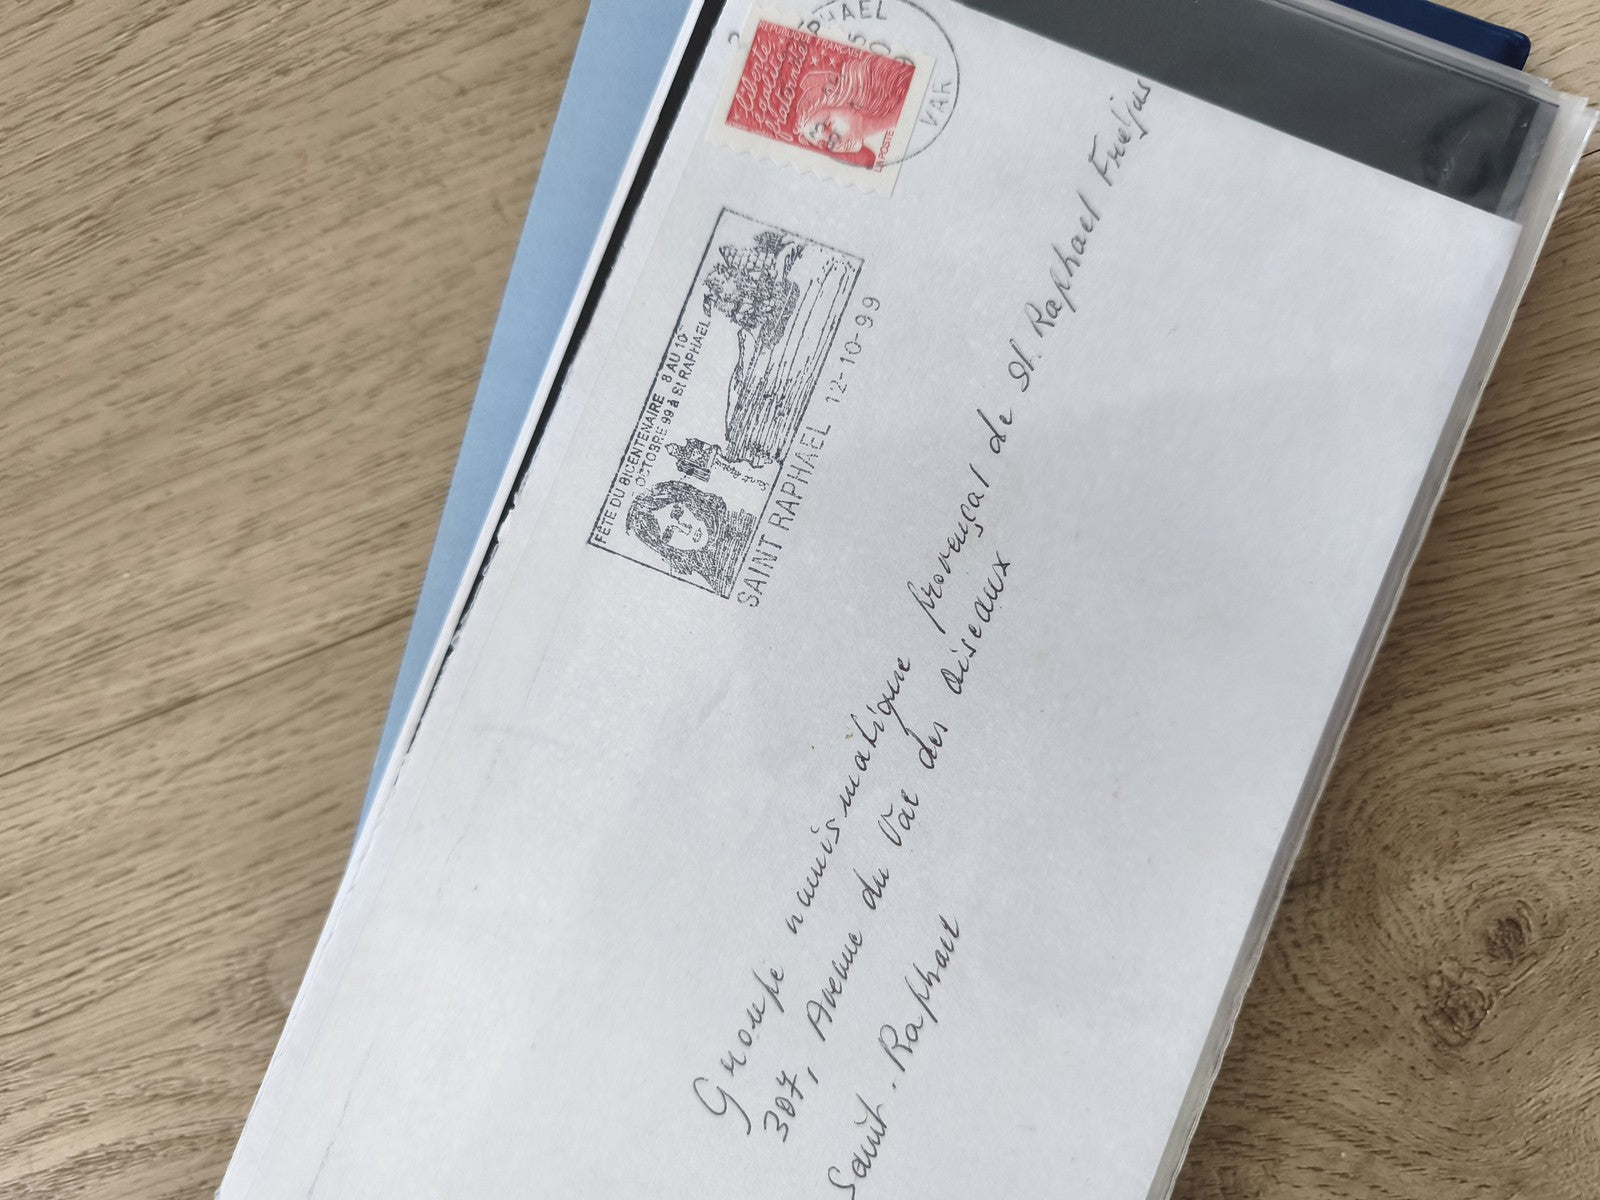 RÉPUBLIQUE FRANÇAISE
liberté
égalité
fraternité
LA POSTE
RAPHAEL
VAR
FÊTE DU BICENTENAIRE 8 AU 10
OCTOBRE 99 à St RAPHAEL
SAINT RAPHAEL 12-10-99
Groupe numismatique provençal de St. Raphael Frejus
307, Avenue du Val des Oiseaux
Saint-Raphael